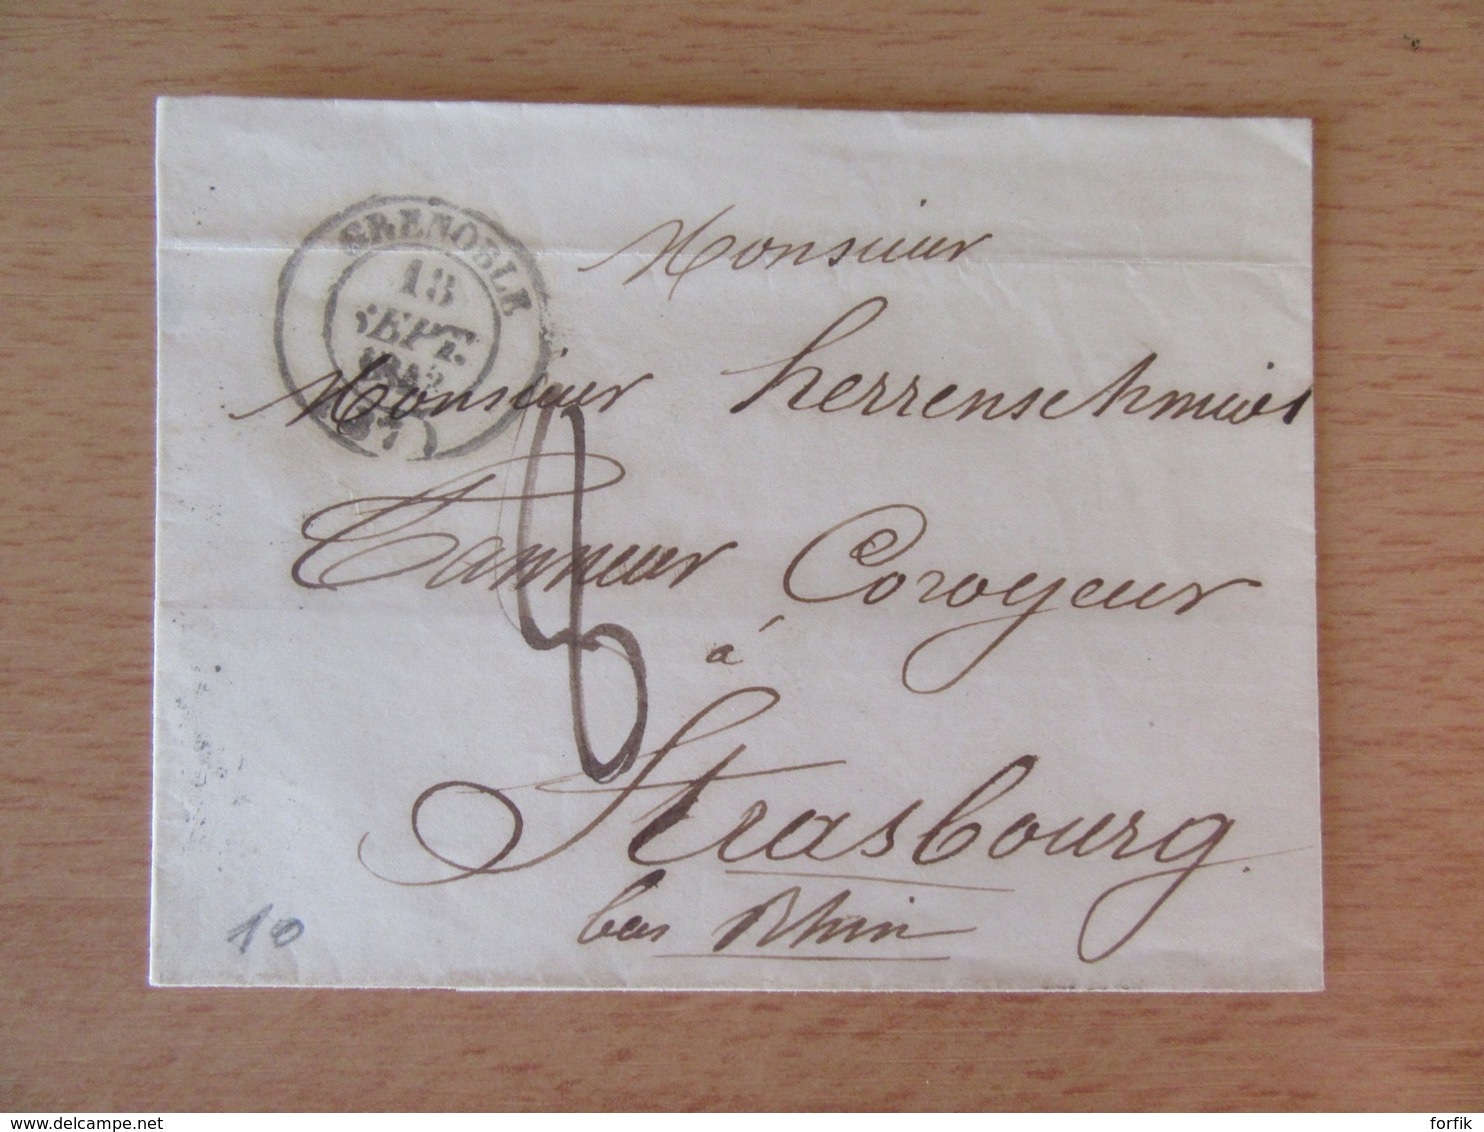 GRENOBLE
18
SEPT.
1845
(37)
Monsieur
Monsieur herrenschmidt
Tanneur Coroyeur
8
á
Strasbourg.
bas Rhin
10
delcampe.net
forfik